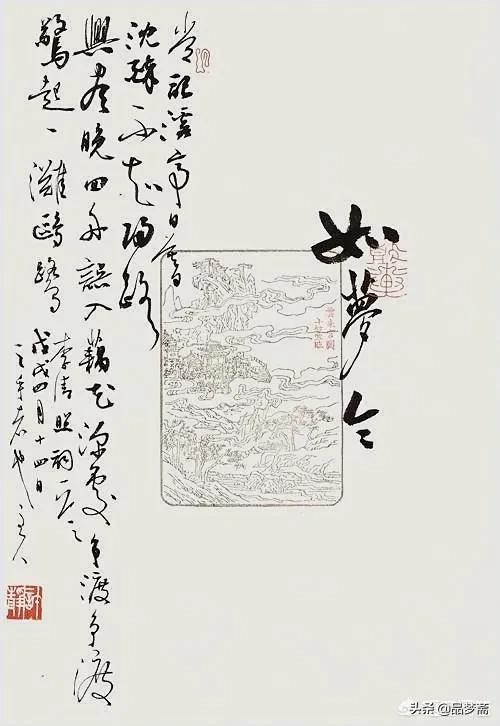 如夢令
常記溪亭日暮
沈醉不知歸路
興盡晚回舟誤入藕花深處爭渡爭渡
驚起一灘鷗鷺
李清照詞
戊戌四月十四日
主人
头条 @品梦斋